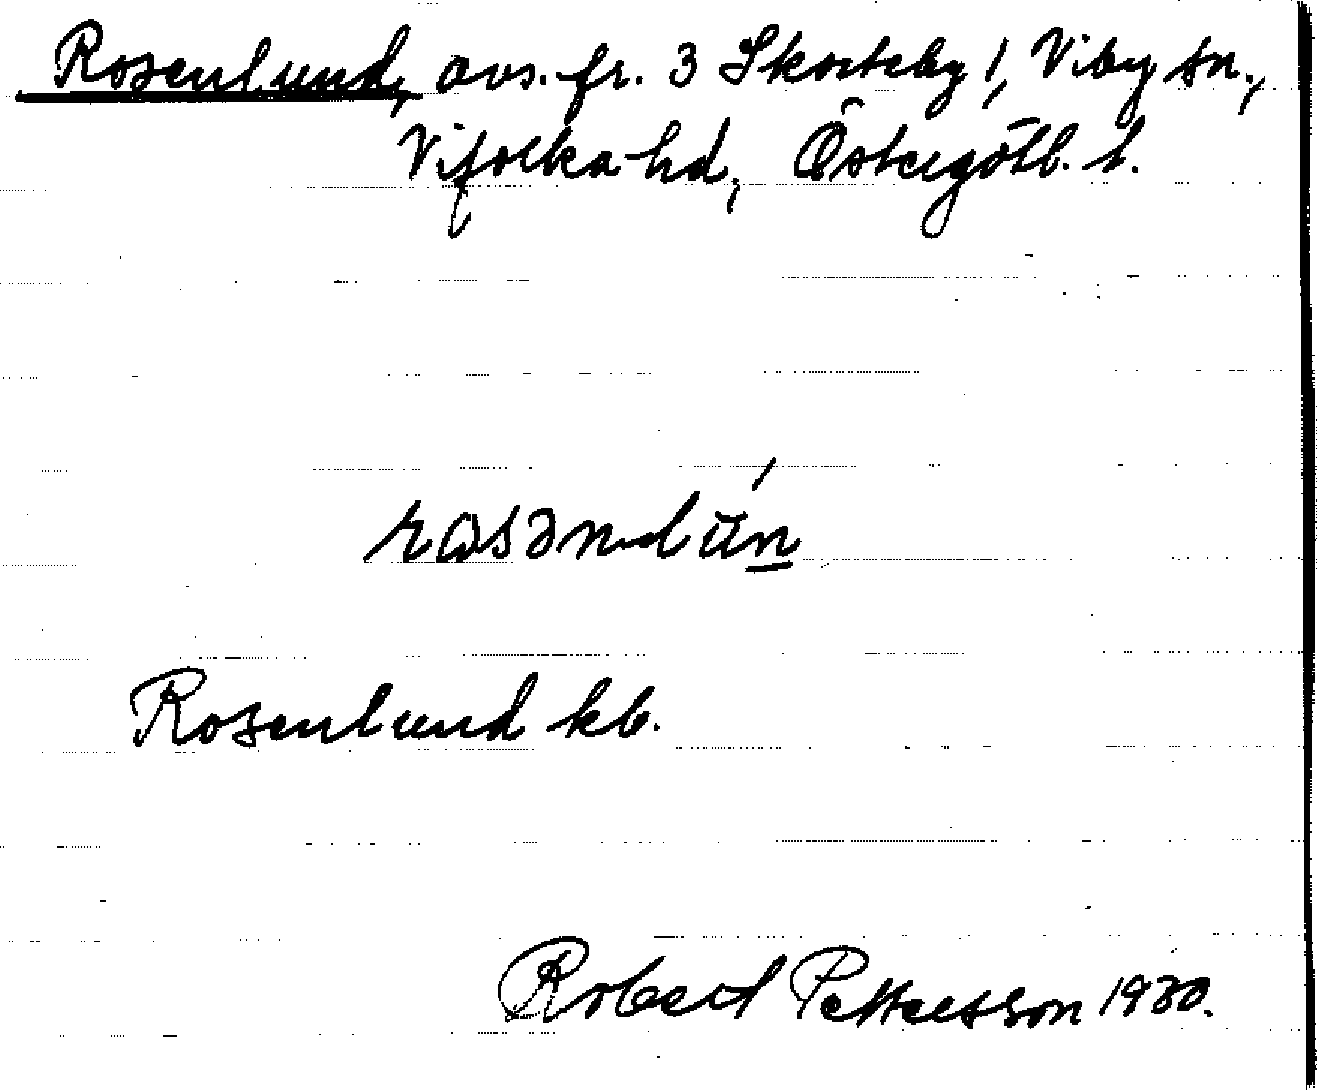 Rosenlund, avs. fr. 3 Skorteby 1, Viby sn.,
Vifolka hd, Östergötl. l.
Rosenlund kb.
Robert Pettersson 1930.